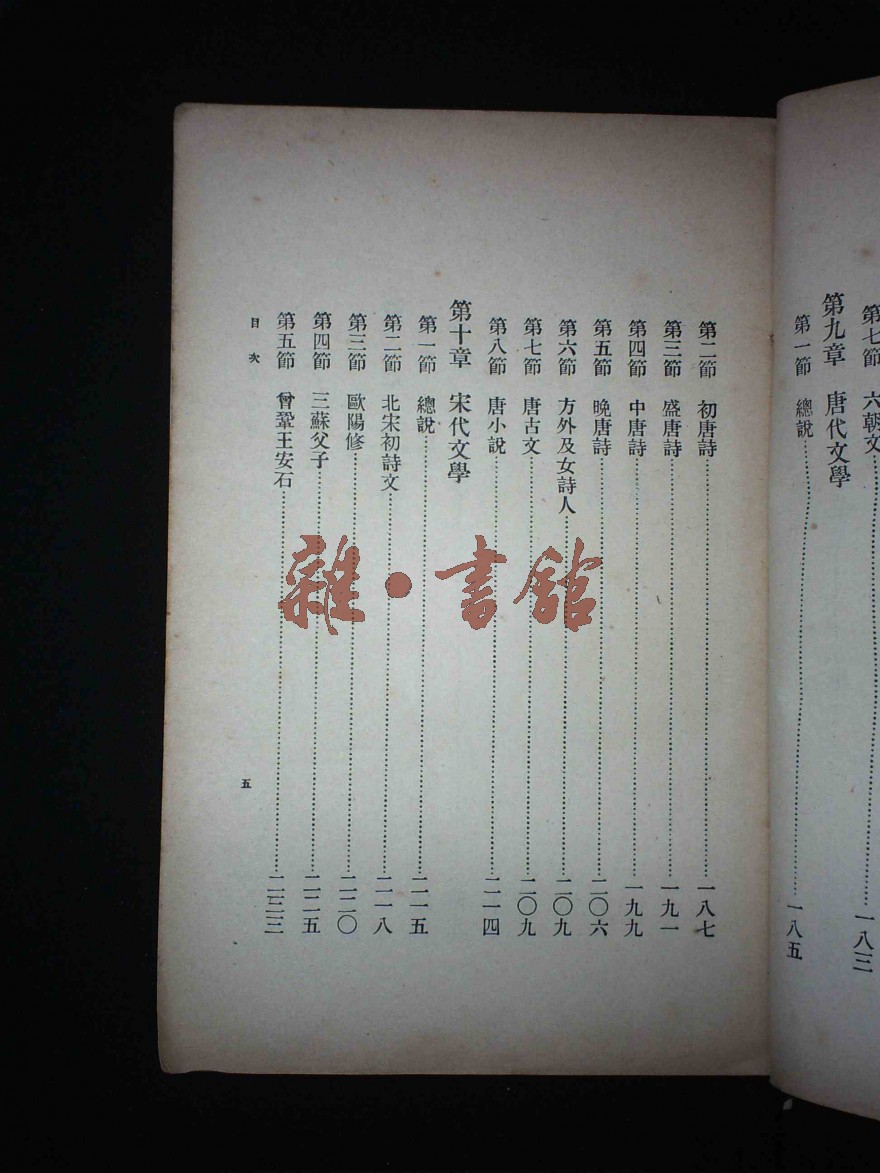 第七節 六朝文……一八三
第九章 唐代文學
第一節 總說……一八五
第二節 初唐詩……一八七
第三節 盛唐詩……一九一
第四節 中唐詩……一九九
第五節 晚唐詩……二〇六
第六節 方外及女詩人……二〇九
第七節 唐古文……二〇九
第八節 唐小說……二一四
第十章 宋代文學
第一節 總說……二一五
第二節 北宋初詩文……二一八
第三節 歐陽修……二二〇
第四節 三蘇父子……二二五
第五節 曾鞏王安石……二三三
目次
五
雜·書館